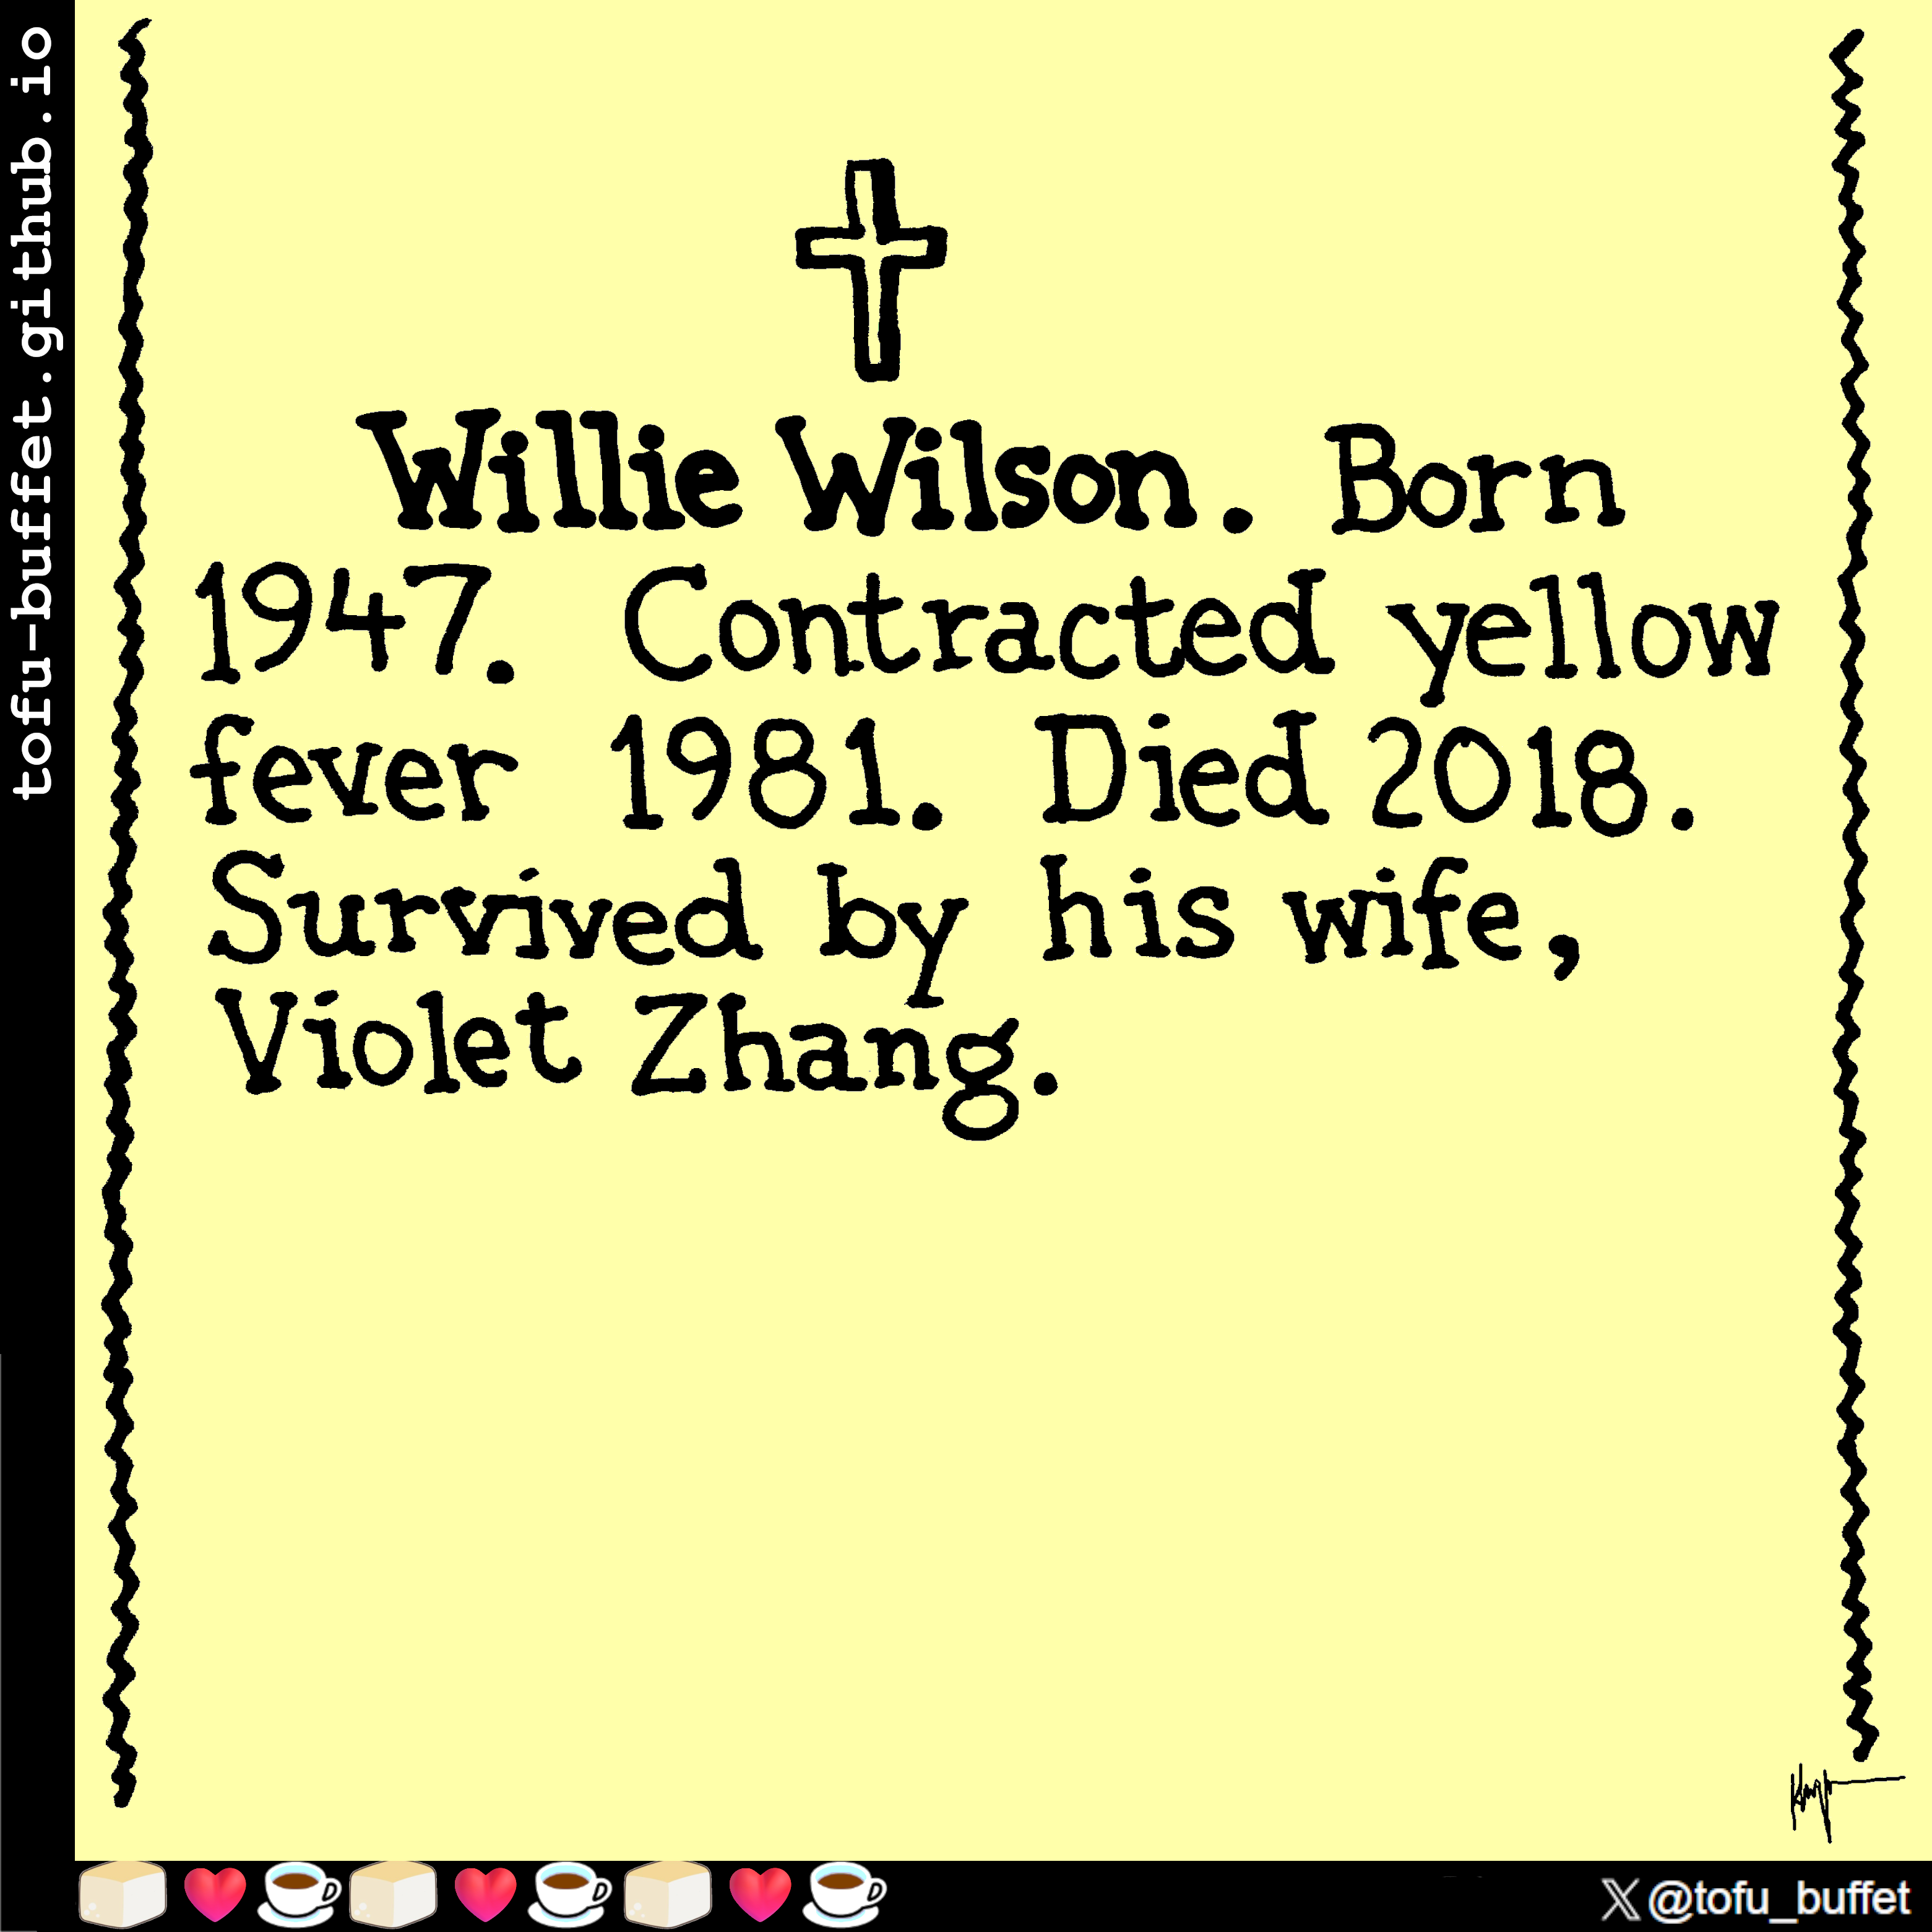 tofu-buffet.github.io
Willie Wilson. Born
1947. Contracted yellow
fever 1981. Died 2018.
Survived by his wife,
Violet Zhang.
X @tofu_buffet